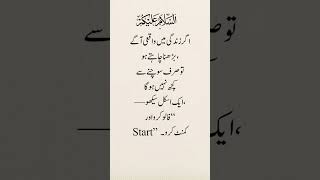 السلام علیکم
اگر زندگی میں واقعی آگے
بڑھنا چاہتے ہو،
تو صرف سوچنے سے
کچھ نہیں ہوگا
ایک اسکل سیکھو—،
“فالو کرو اور
کمنٹ کرو۔ ”Start